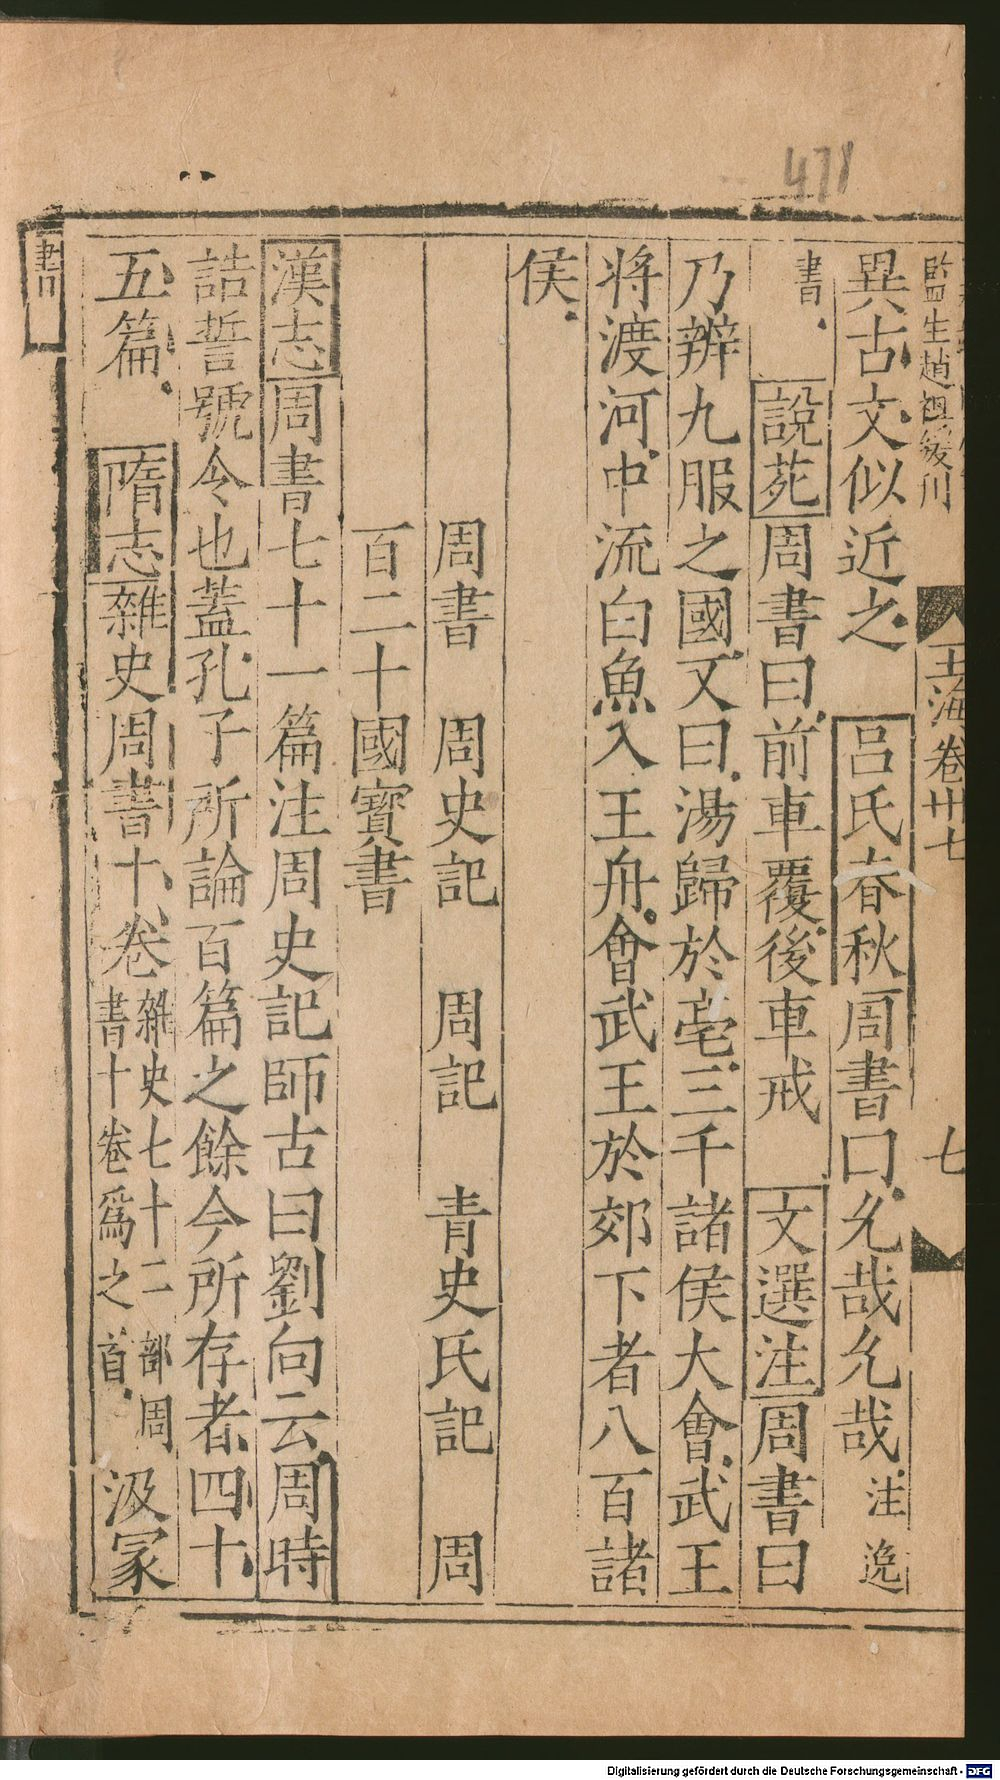 478
監生趙祖綬刊
玉海卷卅七
七
異古文似近之 呂氏春秋周書曰允哉允哉注逸
書 說苑周書曰前車覆後車戒 文選注周書曰
乃辨九服之國又曰湯歸於亳三千諸侯大會武王
將渡河中流白魚入王舟會武王於郊下者八百諸
侯
周書 周史記 周記 青史氏記 周
百二十國寶書
漢志周書七十一篇注周史記師古曰劉向云周時
誥誓號令也蓋孔子所論百篇之餘今所存者四十
五篇 隋志雜史周書十卷雜史七十二部周
書十卷爲之首 汲冢
書
Digitalisierung gefördert durch die Deutsche Forschungsgemeinschaft - DFG